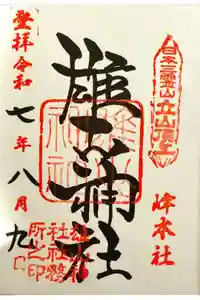 日本三霊山
立山頂上
峰本社
雄山神社
雄山神社
雄山神
社社務
所之印
登拝令和七年八月九日